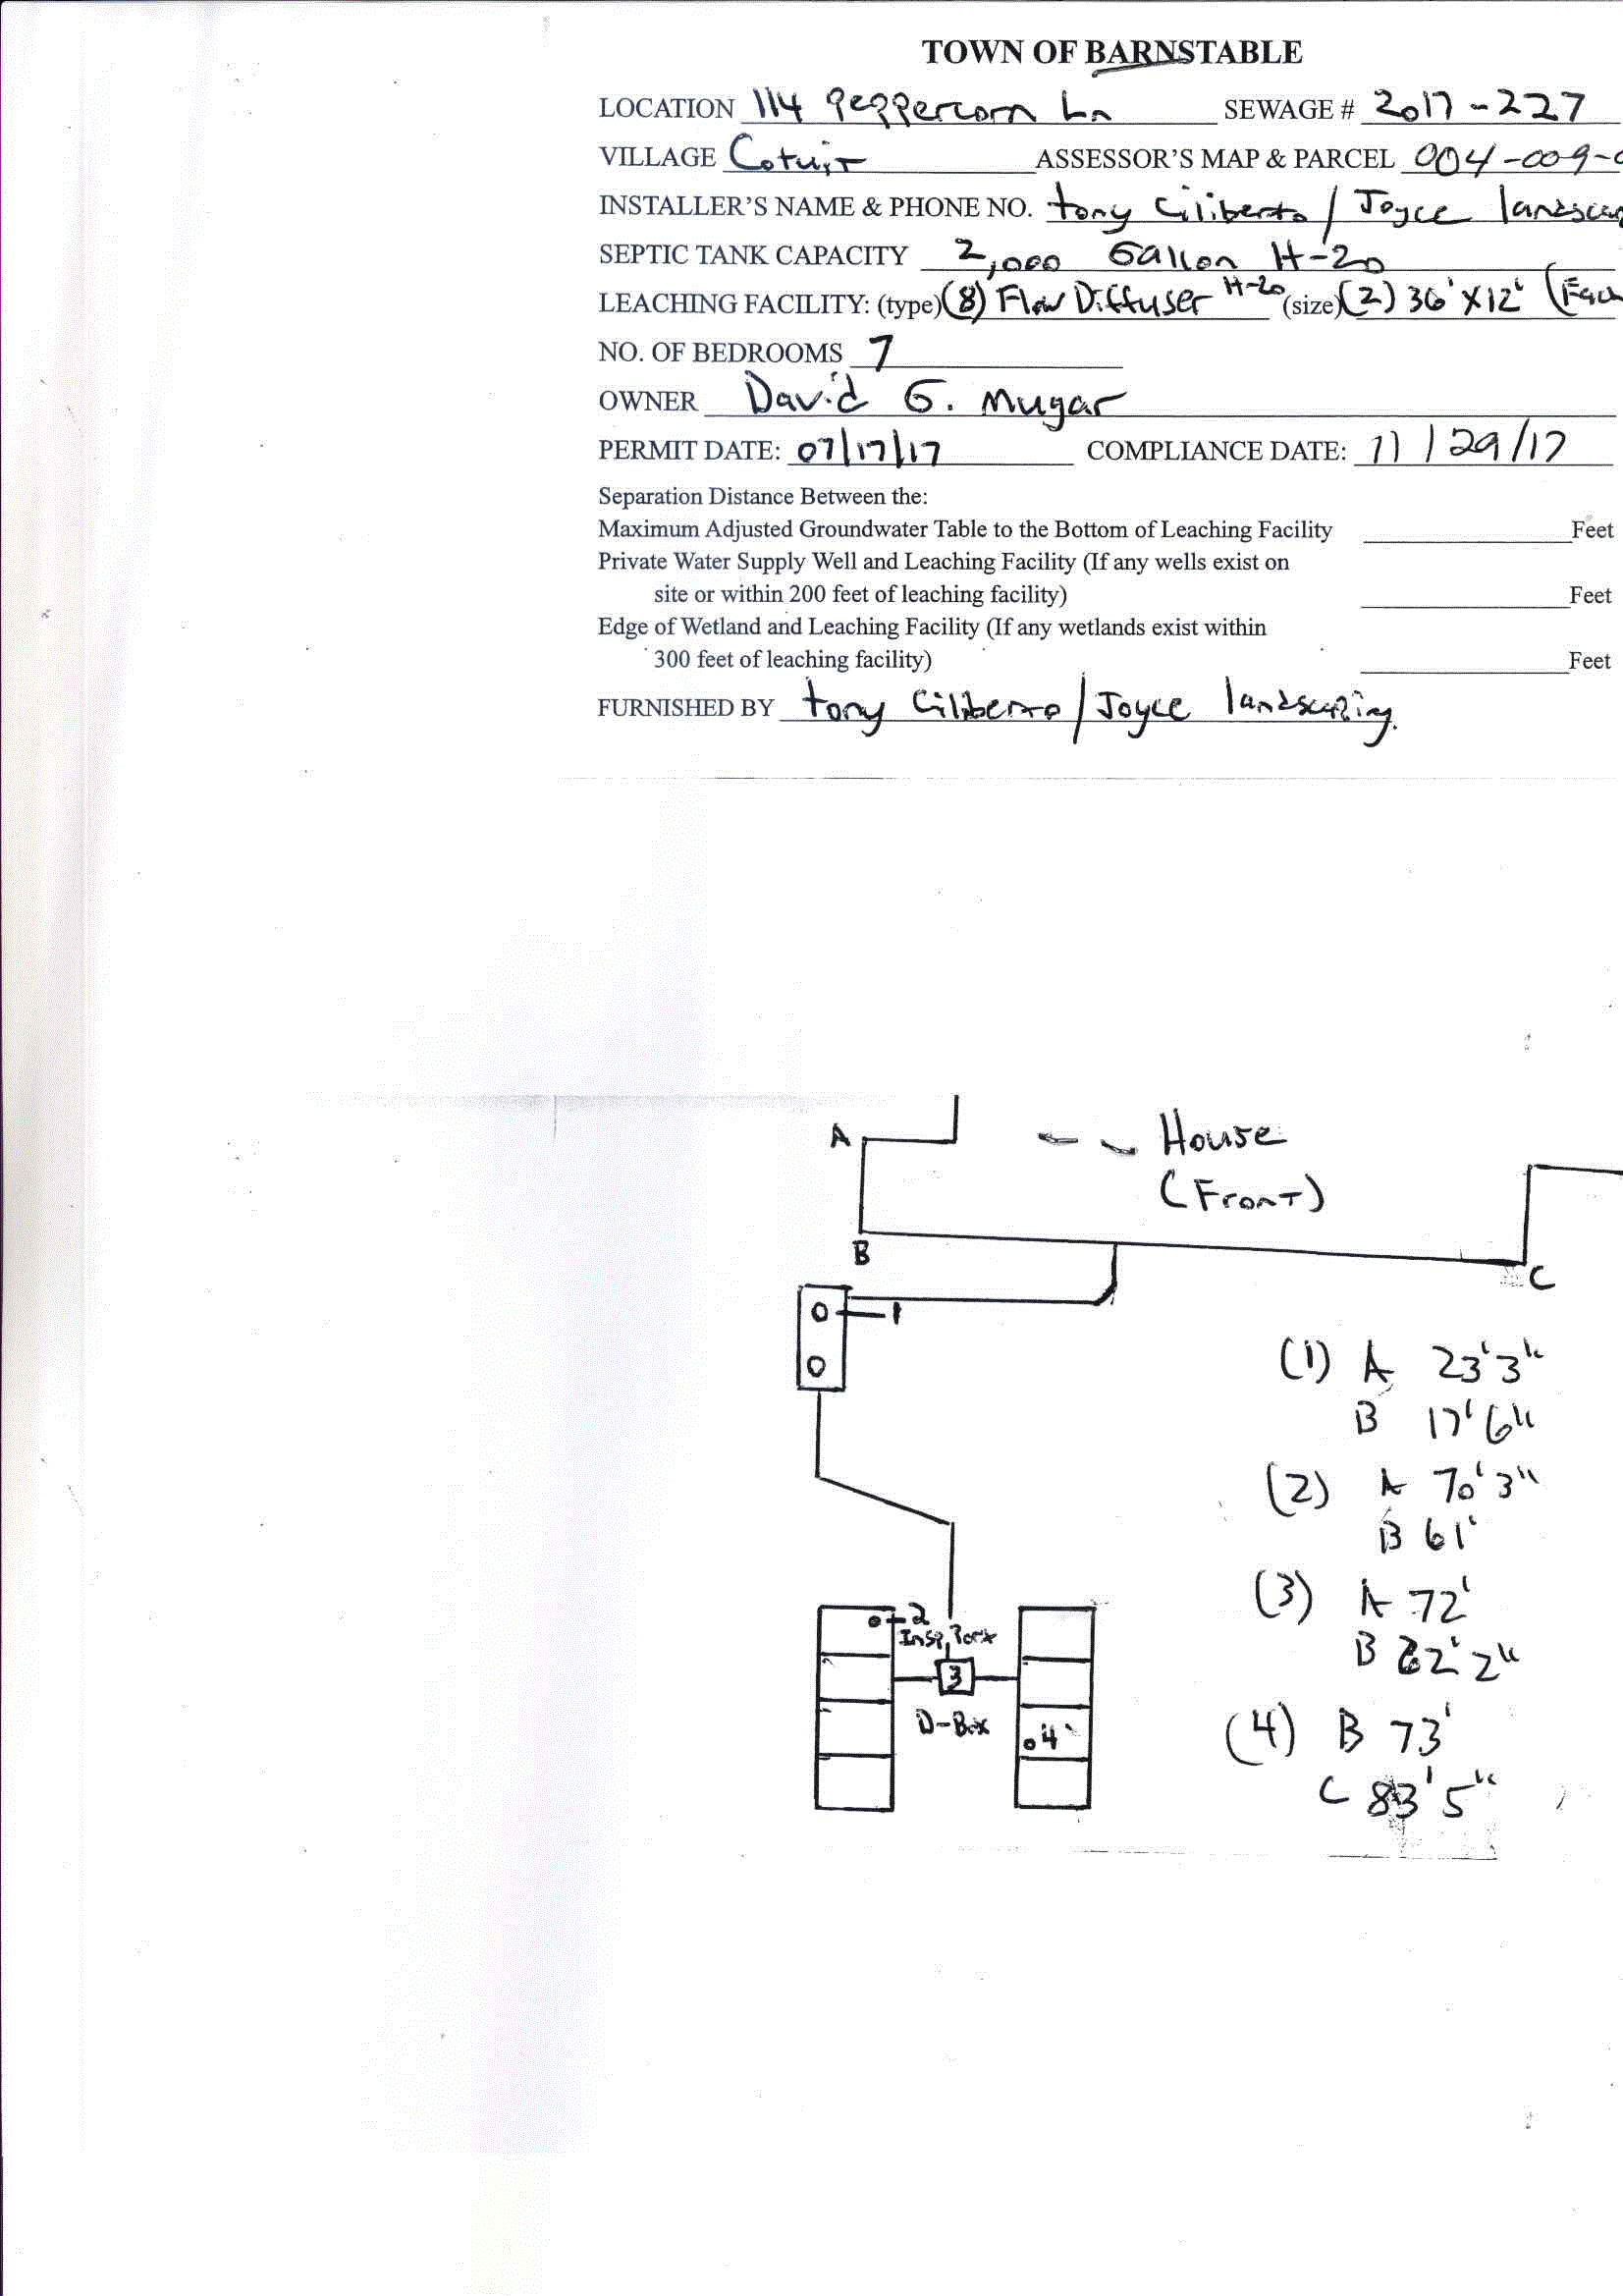 TOWN OF BARNSTABLE
LOCATION 114 Peppercorn Ln SEWAGE # 2017-227
VILLAGE Cotuit ASSESSOR'S MAP & PARCEL 004-009-
INSTALLER'S NAME & PHONE NO. tony Ciliberto / Joyce landscap
SEPTIC TANK CAPACITY 2,000 Gallon H-20
LEACHING FACILITY: (type) (8) Flow Diffuser H-20 (size) (2) 36' X 12' (Each
NO. OF BEDROOMS 7
OWNER David G. Mugar
PERMIT DATE: 07/17/17 COMPLIANCE DATE: 11/29/17
Separation Distance Between the:
Maximum Adjusted Groundwater Table to the Bottom of Leaching Facility Feet
Private Water Supply Well and Leaching Facility (If any wells exist on
site or within 200 feet of leaching facility) Feet
Edge of Wetland and Leaching Facility (If any wetlands exist within
300 feet of leaching facility) Feet
FURNISHED BY tony Ciliberto / Joyce landscaping.
A
House
(Front)
B
C
1
(1) A 23' 3"
B 17' 6"
(2) A 70' 3"
B 61'
(3) A 72'
B 62' 2"
(4) B 73'
C 83' 5"
2
Insp. Port
3
D-Box
4